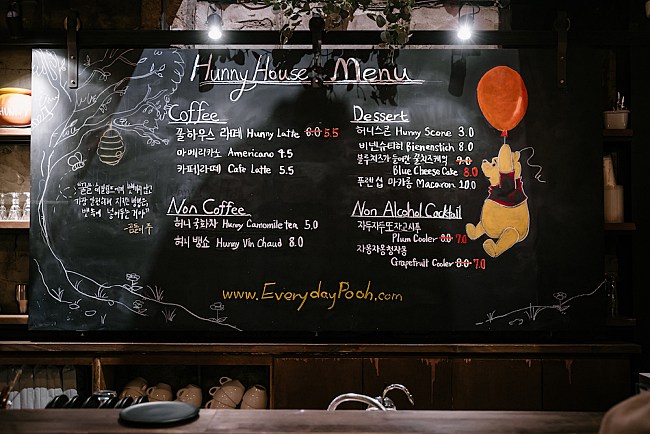 Hunny House Menu
Coffee
꿀하우스 라떼 Hunny Latte 6.0 5.5
아메리카노 Americano 4.5
카페라떼 Cafe Latte 5.5
Non Coffee
허니 국화차 Hunny Camomile tea 5.0
허니 뱅쇼 Hunny Vin Chaud 8.0
Dessert
허니스콘 Hunny Scone 3.0
비넨슈티히 Bienenstich 8.0
블루치즈가 들어간 꿀치즈케익 9.0
Blue Cheese Cake 8.0
푸렌섭 마카롱 Macaron 10.0
Non Alcohol Cocktail
자두자두또자고시푸
Plum Cooler 8.0 7.0
자몽자몽청자몽
Grapefruit Cooler 8.0 7.0
가장 안전하게
곰돌이 푸
www.EverydayPooh.com